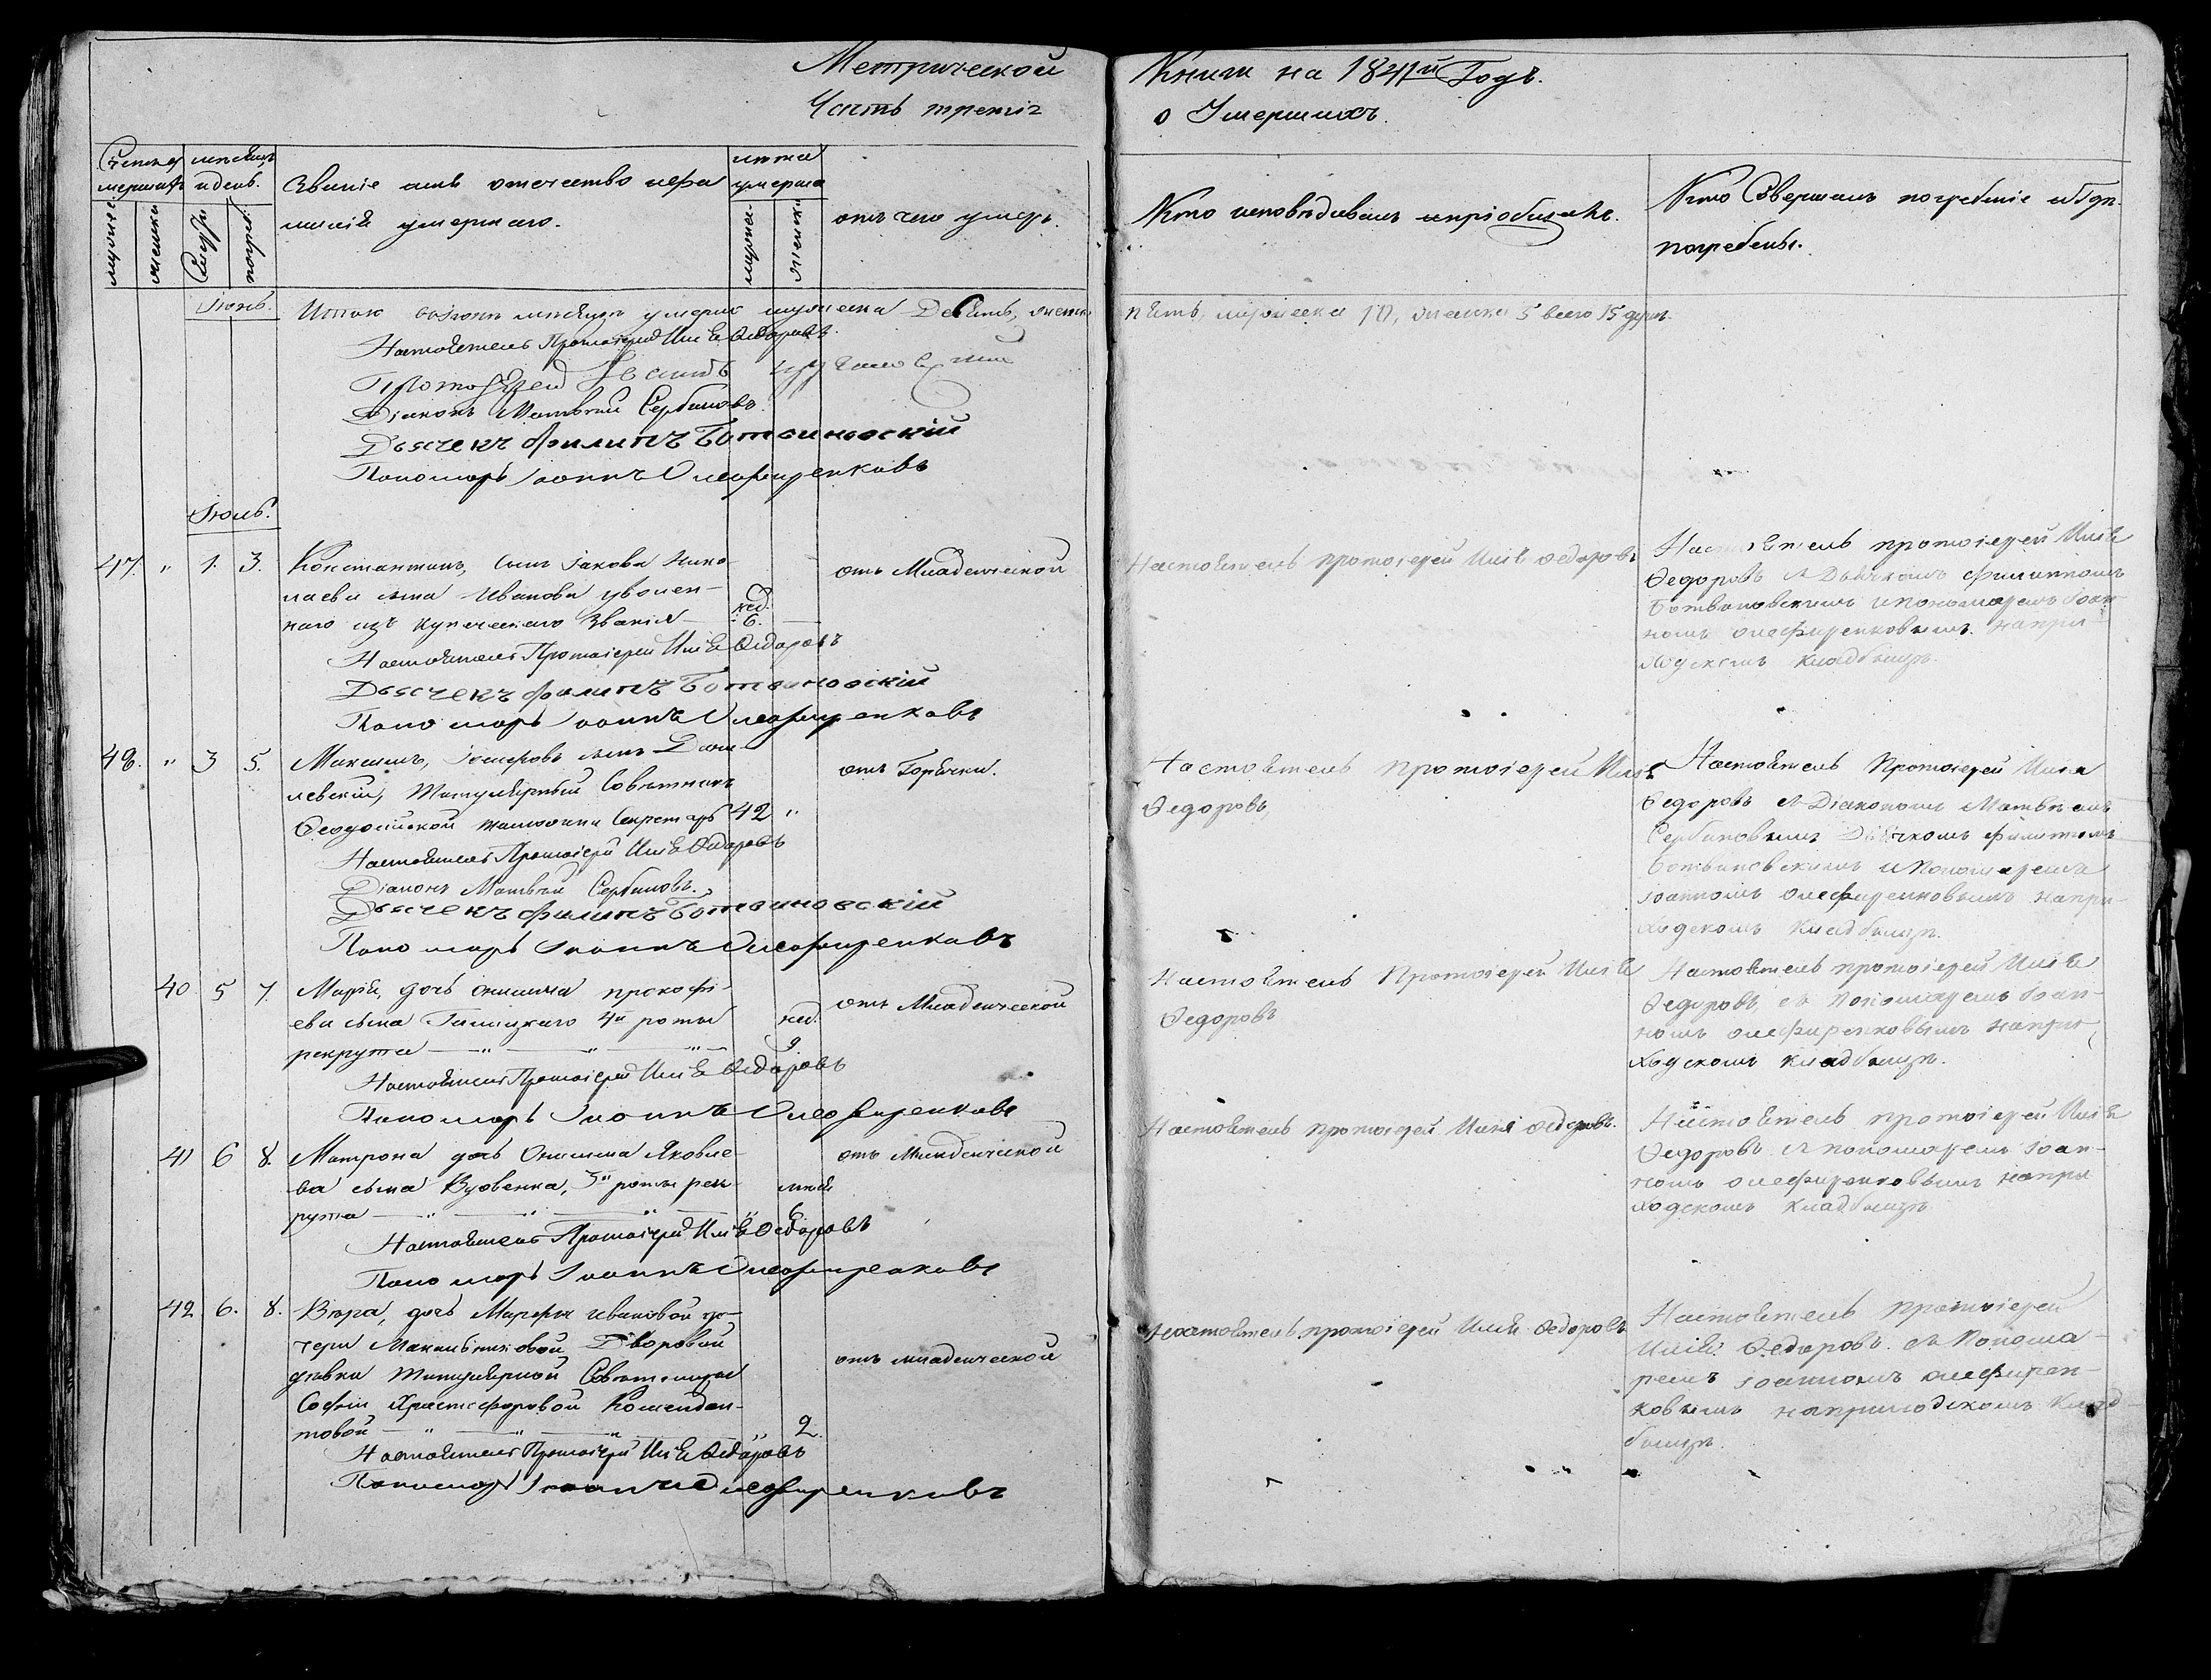 Метрической
Часть третія
Книги на 1841й Годъ.
о Умершихъ.
Счетъ умершихъ
мѣсяцъ и день.
Званіе имя отечество и фа
милія умершаго.
лѣта умерша
отъ чего умеръ.
мужеска
женска
Смерт
погреб.
мужеск.
женска
Кто исповѣдывалъ и пріобщалъ.
Кто Совершалъ погребеніе и гдѣ
погребены.
Іюнь.
Итого въ іюнѣ мѣсяцѣ умерло мужеска Девять, женска
пять, мужеска 10, женска 5 всего 15 душъ.
Настоятель Протоіерей Илія Федоровъ
Протоіерей
Діаконъ Матвѣй Сербиновъ
Дьячекъ Филипъ Ботвиновскій
Пономарь Іоаннъ Олефиренковъ
Іюль.
47. " 1. 3. Константинъ, сынъ Іакова Нико-
лаева сына Иванова уволен-
наго изъ купеческаго званія —
нед.
6.
отъ Младенческой
Настоятель Протоіерей Илія Федоровъ
Дьячекъ Филипъ Ботвиновскій
Пономарь Іоаннъ Олефиренковъ
Настоятель протоіерей Илія Федоровъ
Настоятель протоіерей Илія
Федоровъ съ Дьячкомъ Филиппомъ
Ботвиновскимъ и пономаремъ Іоан-
номъ Олефиренковымъ на при-
ходскомъ кладбищѣ.
48. " 3 5. Максимъ, Іосифовъ сынъ
левскій, Титулярный Совѣтникъ
Феодосійской таможни Секретарь 42 "
отъ Горячки.
Настоятель Протоіерей Илія Федоровъ
Діаконъ Матвѣй Сербиновъ.
Дьячекъ Филипъ Ботвиновскій
Пономарь Іоаннъ Олефиренковъ
Настоятель протоіерей Илія
Федоровъ,
Настоятель Протоіерей Илія
Федоровъ съ Діакономъ Матвѣемъ
Сербиновымъ Дьячкомъ Филиппомъ
Ботвиновскимъ и Пономаремъ
Іоанномъ Олефиренковымъ на при-
ходскомъ кладбищѣ.
40 5 7. Марія, дочь Онисима Прокофі-
ева сына Галицкаго 4й роты
рекрута — " — " — " —
нед.
9
отъ Младенческой
Настоятель Протоіерей Илія Федоровъ
Пономарь Іоаннъ Олефиренковъ
Настоятель Протоіерей Илія
Федоровъ
Настоятель протоіерей Илія
Федоровъ, съ Пономаремъ Іоан-
номъ Олефиренковымъ на при-
ходскомъ кладбищѣ.
41 6 8. Матрона дочь Онисима Яковле-
ва сына Вдовенка, 5й роты рек-
рута — " — " — " —
мѣся
6
отъ младенческой
Настоятель Протоіерей Илія Федоровъ
Пономарь Іоаннъ Олефиренковъ
Настоятель протоіерей Илія Федоровъ.
Настоятель протоіерей Илія
Федоровъ съ пономаремъ Іоан-
номъ Олефиренковымъ на при
ходскомъ кладбищѣ
42 6. 8. Вѣра, дочь Марфы Ивановой до-
чери Дворовой
дѣвки Титулярной Совѣтницы
Софіи Христофоровой Комендан-
товой — " — " — " 2.
отъ младенческой
Настоятель Протоіерей Илія Федоровъ
Пономарь Іоаннъ Олефиренковъ
Настоятель протоіерей Илія Федоровъ
Настоятель протоіерей
Илія Федоровъ съ Понома-
ремъ Іоанномъ Олефирен-
ковымъ на приходскомъ клад-
бищѣ.